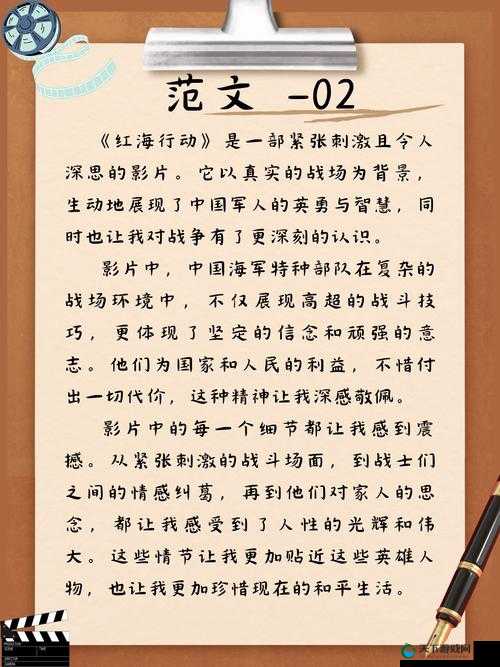 范文 -02
《红海行动》是一部紧张刺激且令人
深思的影片。它以真实的战场为背景，
生动地展现了中国军人的英勇与智慧，同
时也让我对战争有了更深刻的认识。
影片中，中国海军特种部队在复杂的
战场环境中，不仅展现高超的战斗技
巧，更体现了坚定的信念和顽强的意
志。他们为国家和人民的利益，不惜付
出一切代价，这种精神让我深感敬佩。
影片中的每一个细节都让我感到震
撼。从紧张刺激的战斗场面，到战士们
之间的情感纠葛，再到他们对家人的思
念，都让我感受到了人性的光辉和伟
大。这些情节让我更加贴近这些英雄人
物，也让我更加珍惜现在的和平生活。
天下游戏网